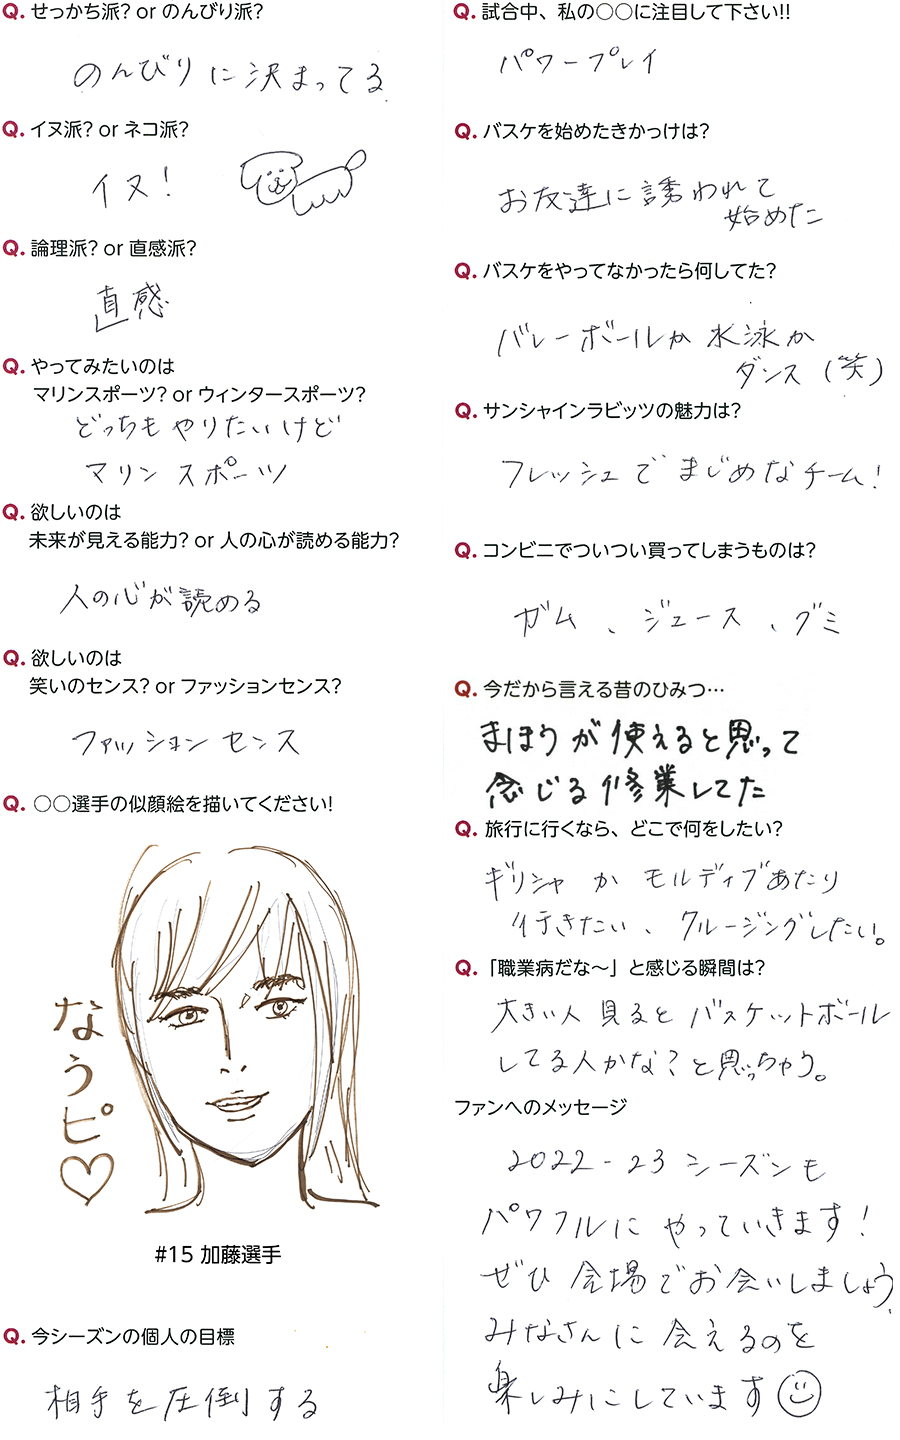 Q. せっかち派? or のんびり派?
のんびりに決まってる
Q. イヌ派? or ネコ派?
イヌ!
Q. 論理派? or 直感派?
直感
Q. やってみたいのは
マリンスポーツ? or ウィンタースポーツ?
どっちもやりたいけど
マリンスポーツ
Q. 欲しいのは
未来が見える能力? or 人の心が読める能力?
人の心が読める
Q. 欲しいのは
笑いのセンス? or ファッションセンス?
ファッションセンス
Q. 〇〇選手の似顔絵を描いてください!
なうピ♡
#15 加藤選手
Q. 今シーズンの個人の目標
相手を圧倒する
Q. 試合中、私の〇〇に注目して下さい!!
パワープレイ
Q. バスケを始めたきかっけは?
お友達に誘われて
始めた
Q. バスケをやってなかったら何してた?
バレーボールか水泳か
ダンス(笑)
Q. サンシャインラビッツの魅力は?
フレッシュでまじめなチーム!
Q. コンビニでついつい買ってしまうものは?
ガム、ジュース、グミ
Q. 今だから言える昔のひみつ…
まほうが使えると思って
念じる修業してた
Q. 旅行に行くなら、どこで何をしたい?
ギリシャかモルディブあたり
行きたい、クルージングしたい。
Q. 「職業病だな〜」と感じる瞬間は?
大きい人見るとバスケットボール
してる人かな?と思っちゃう。
ファンへのメッセージ
2022-23シーズンも
パワフルにやっていきます!
ぜひ会場でお会いしましょう。
みなさんに会えるのを
楽しみにしています☺